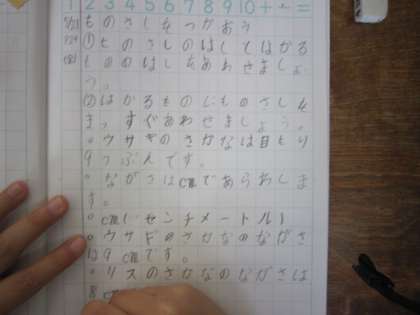 1 2 3 4 5 6 7 8 9 10 + - =
ものさしをつかおう
① ものさしのはしとはかる
もののはしをあわせましょ
う。
② はかるものにものさしを
まっすぐあわせましょう。
○ ウサギのさかなは目もり
9つぶんです。
○ ながさはcmであらわしま
す。
○ cm(センチメートル)
○ ウサギのさかなのながさ
は9cmです。
○ リスのさかなのながさは
8